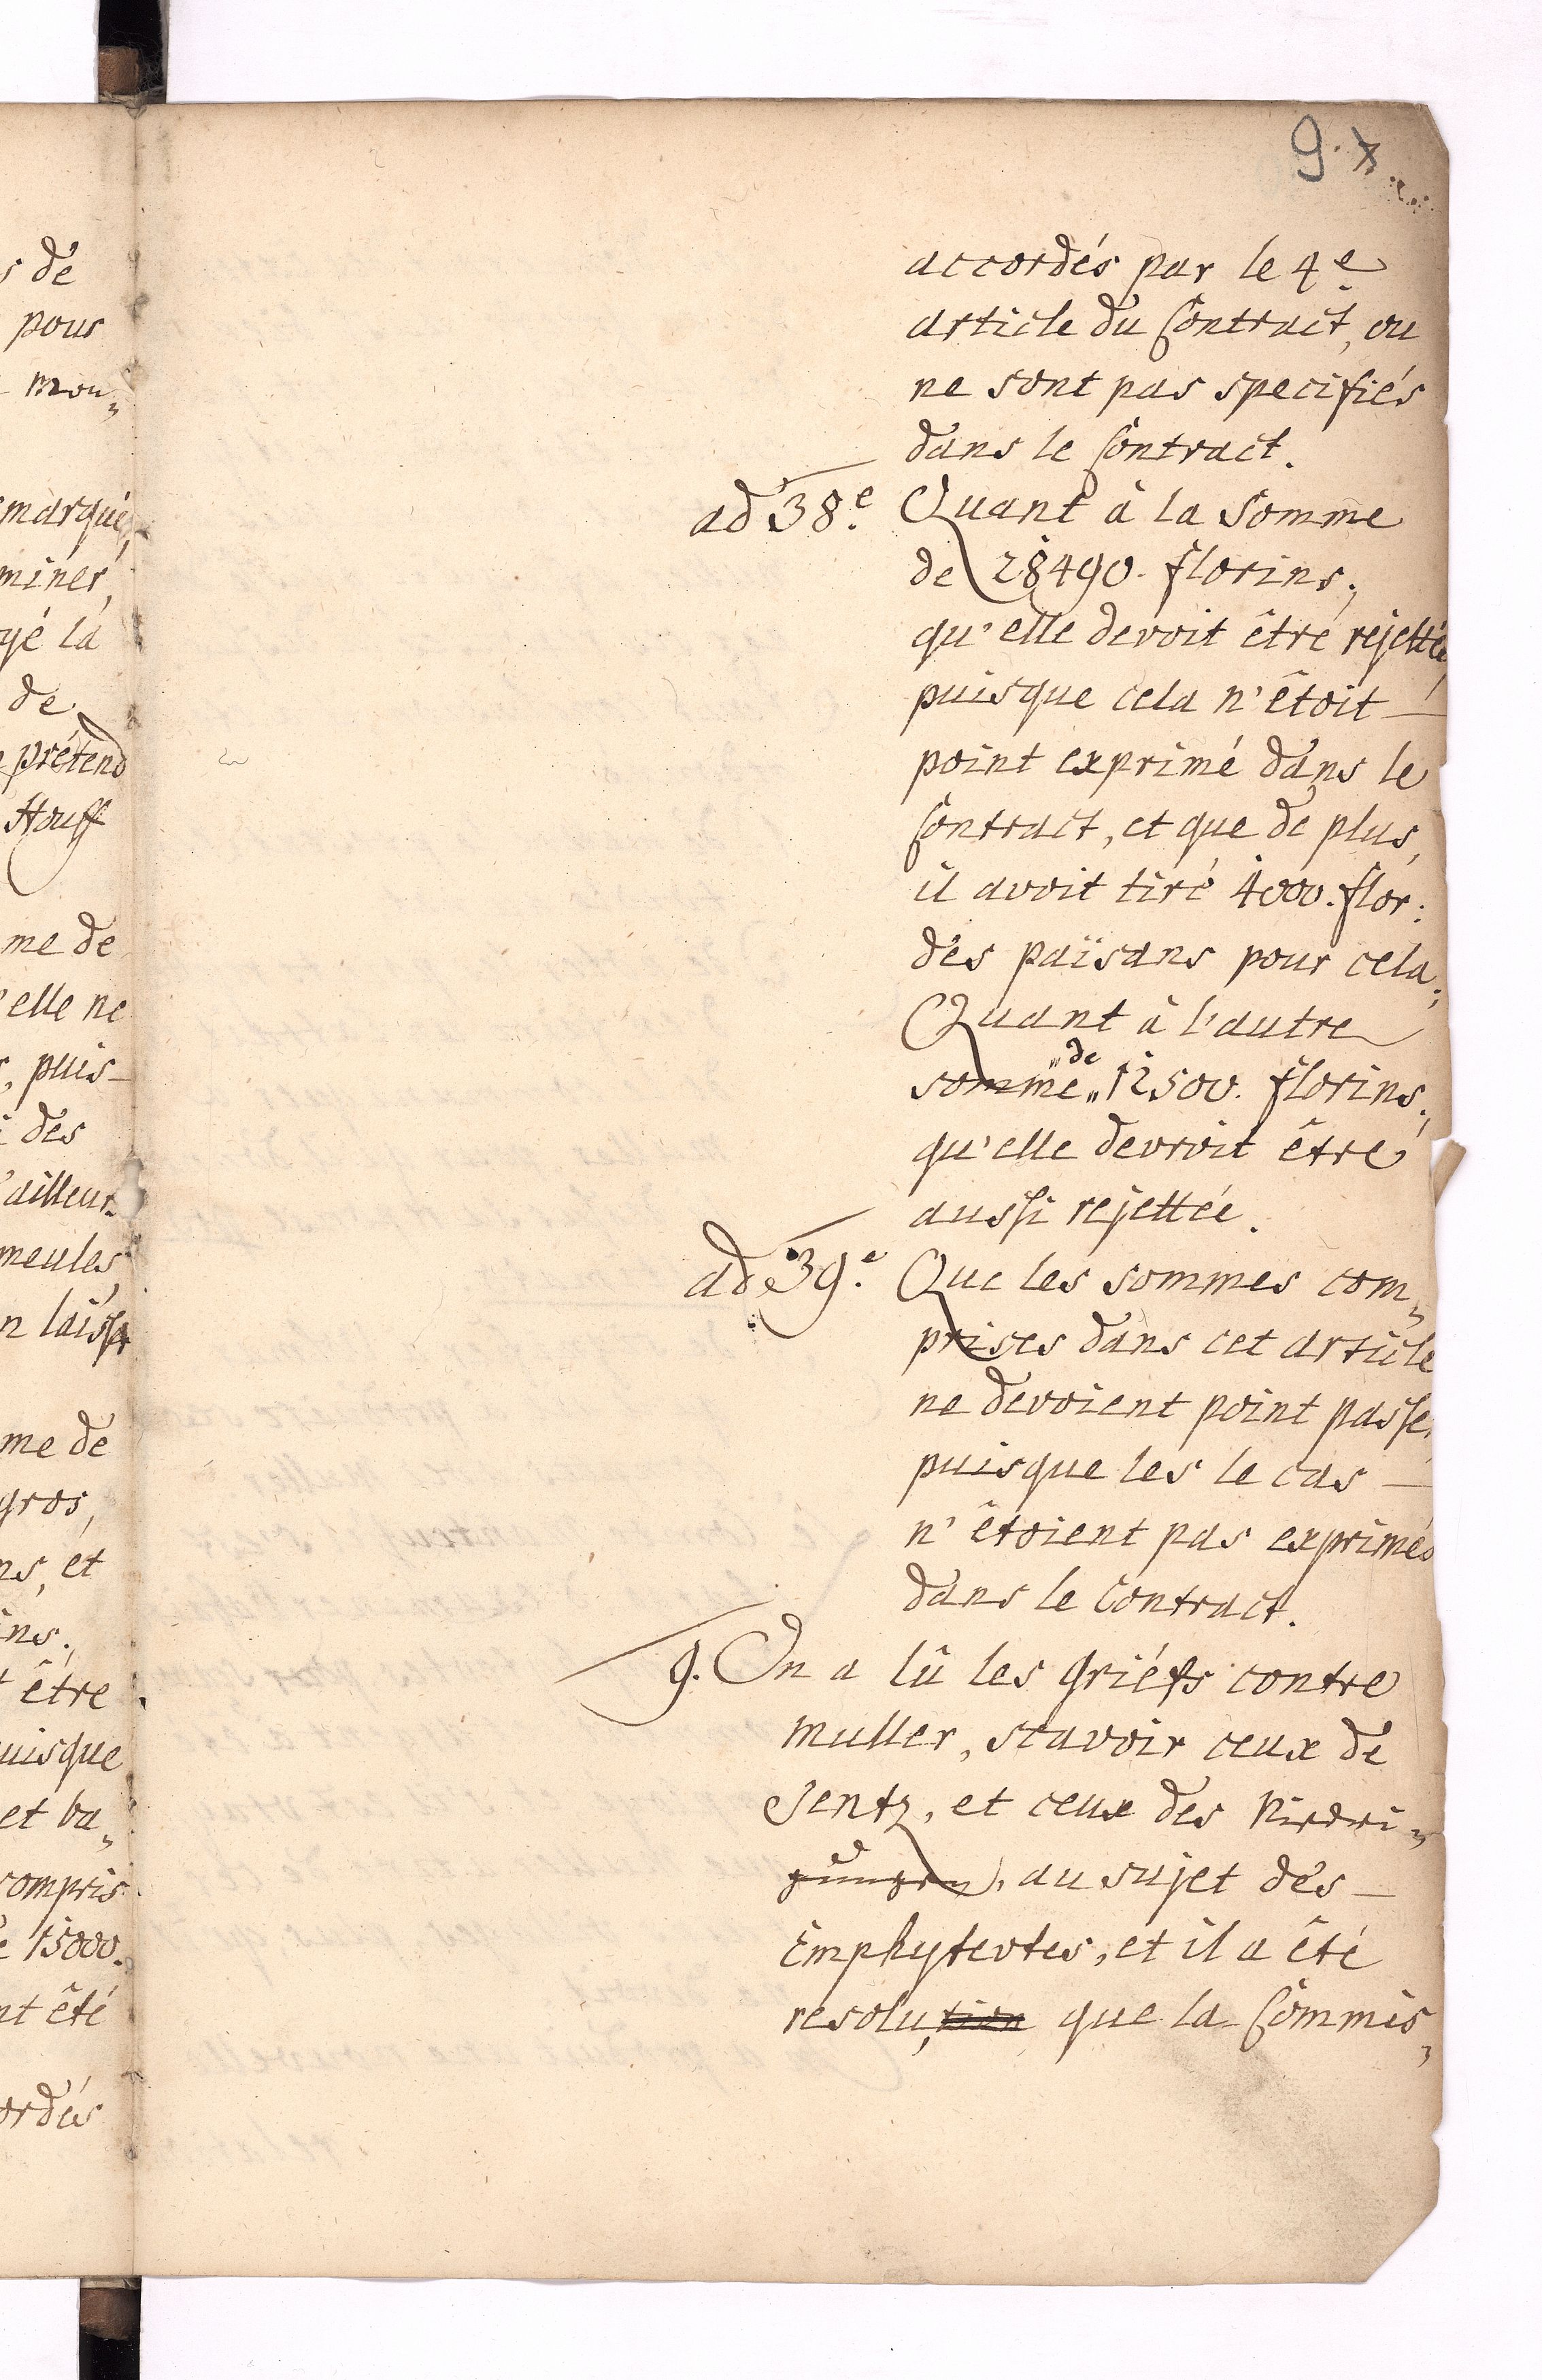 9. 7
s de
pour
mou„
marqué,
miner,
gé la
de
prétend
Houff
me de
'elle ne
s, puis-
des
'ailleur
meules,
n laissa
me de
gros,
ns, et
ins.
être
uisque
et ba„
compris
15000.
nt été
ordés
accordés par le 4e
article du Contract, ou
ne sont pas specifiés
dans le Contract.
ad 38e. Quant à la Somme
de 28490. florins;
qu'elle devoit être rejettée,
puisque cela n'étoit —
point exprimé dans le
Contract, et que de plus,
il avoit tiré 4000. flor:
des païsans pour cela;
Quant à l'autre
somme „de„ 12500. florins;
qu'elle devroit être
aussi rejettée.
ad 39e. Que les sommes com„
prises dans cet article
ne devoient point passer,
puisque les le cas —
n'étoient pas exprimés
dans le Contract.
9. On a lû les griéfs contre
Muller, scavoir ceux de
Jentz, et ceux des Niedri„
gungen, au sujet des —
Emphyteotes, et il a été
resolu,tion que la Commis„